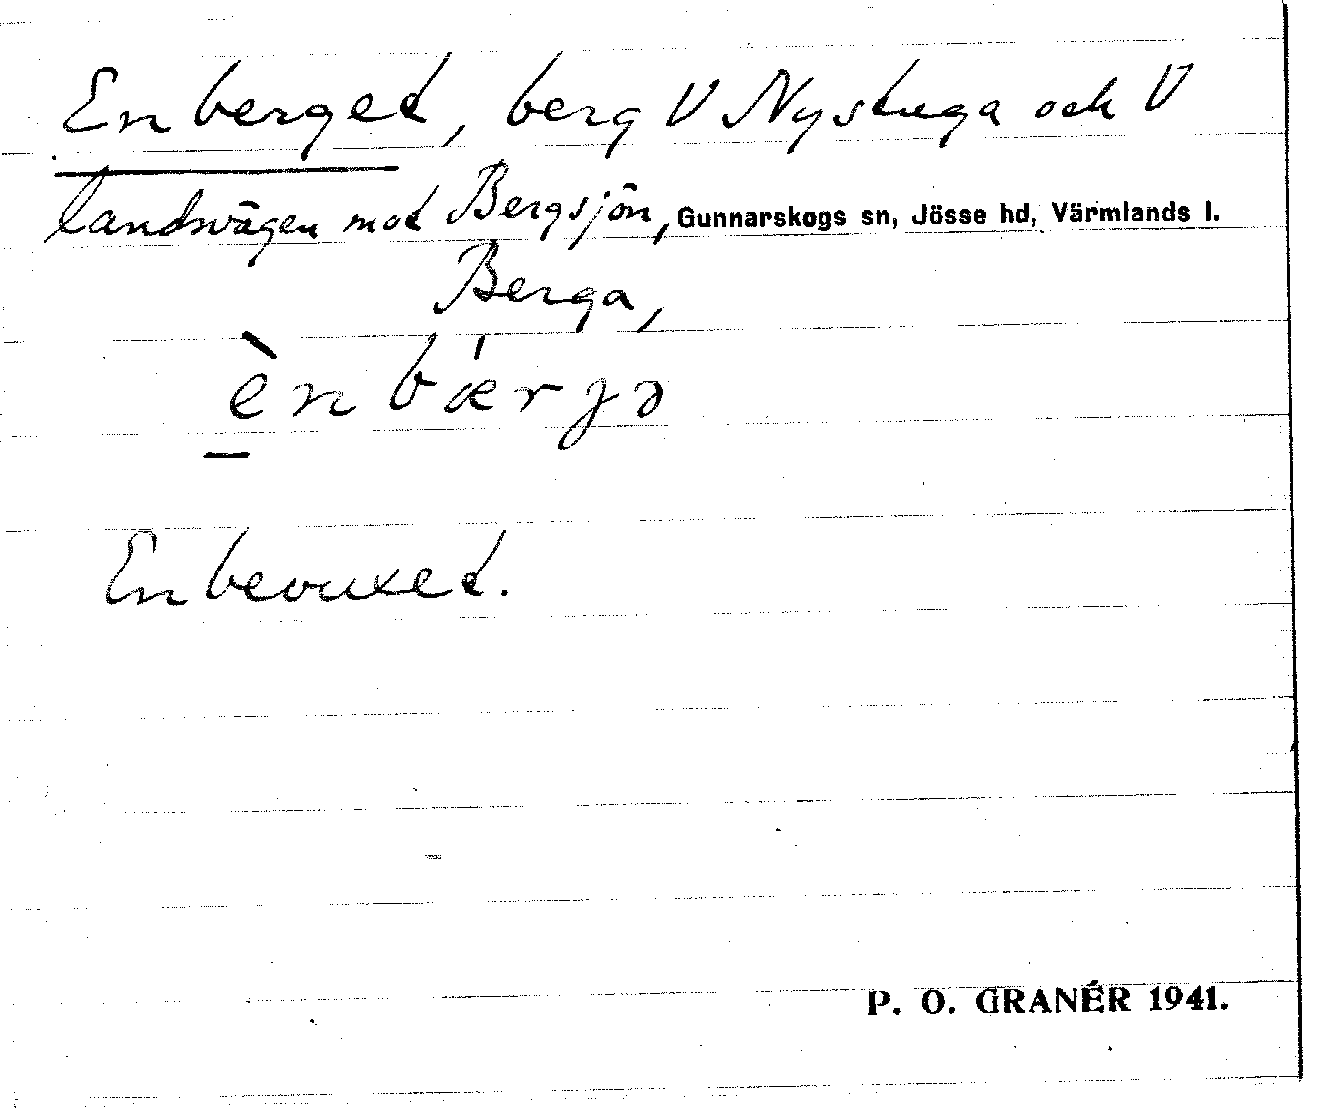 Enberget, berg V Nystuga och V
landsvägen mot Bergsjön, Gunnarskogs sn, Jösse hd, Värmlands l.
Berga,
è̱nbǽrjə
Enbevuxet.
P. O. GRANÉR 1941.